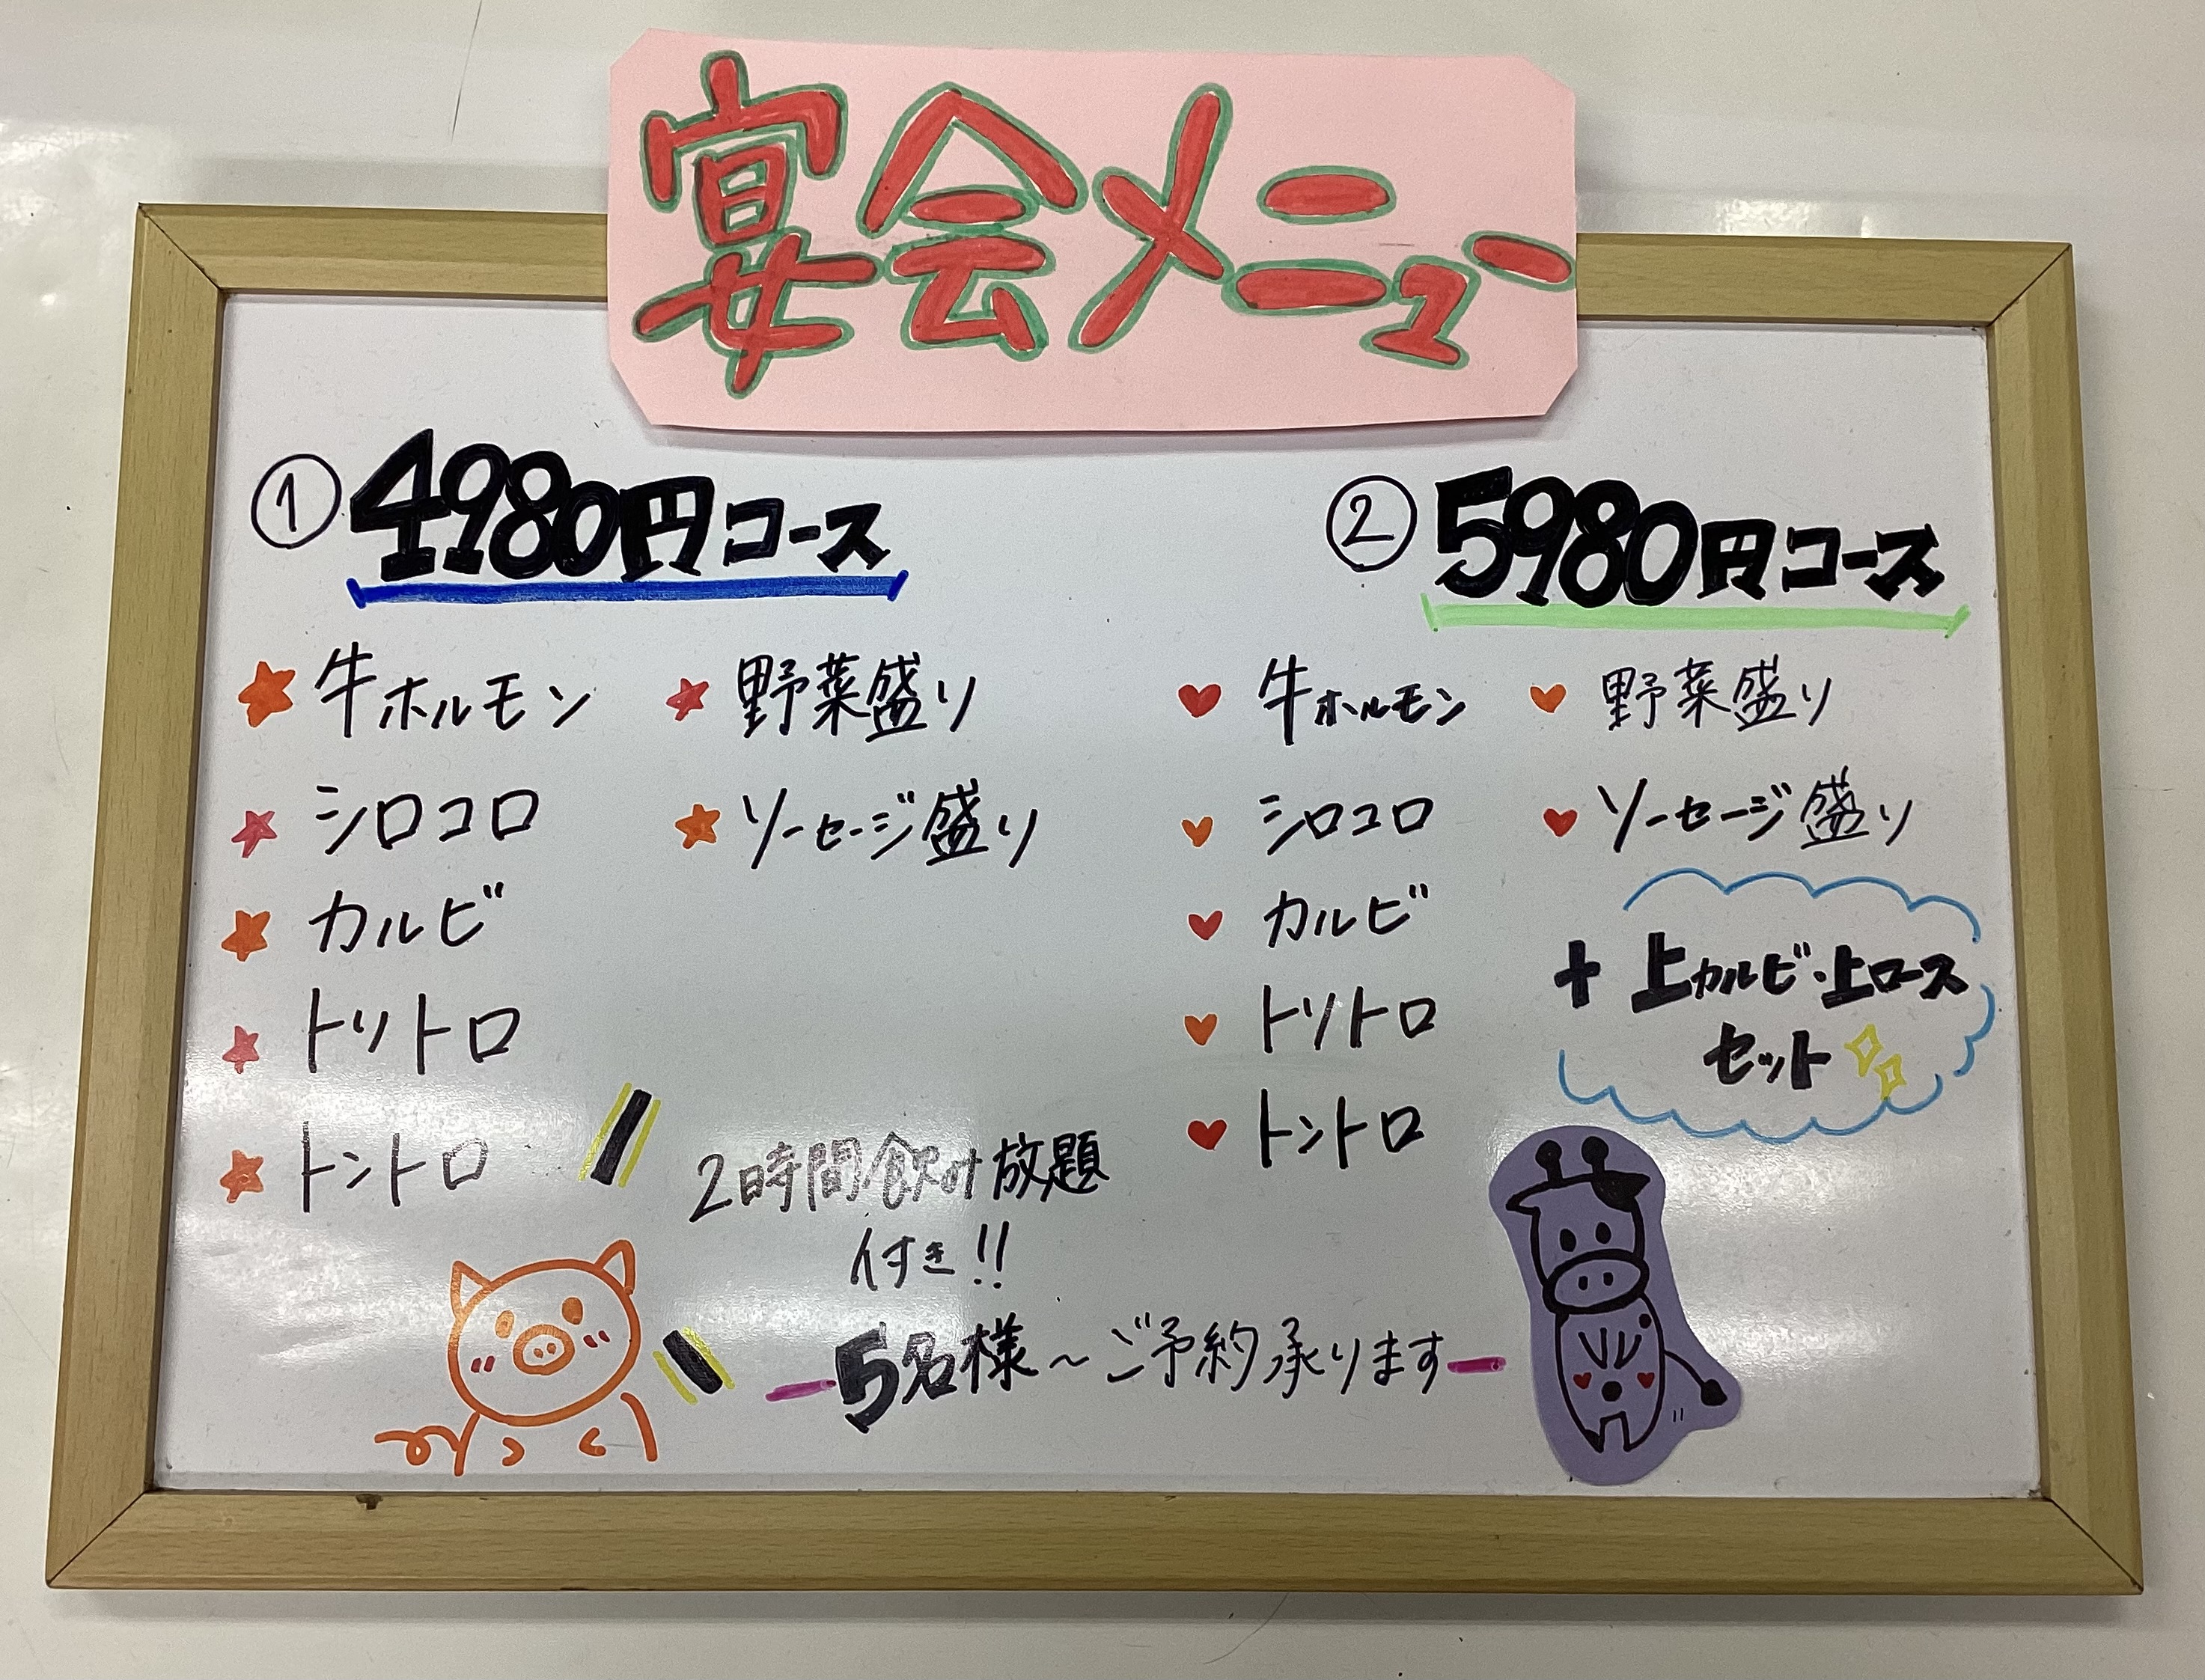 宴会メニュー
①4980円コース
牛ホルモン
シロコロ
カルビ
トリトロ
トントロ
野菜盛り
ソーセージ盛り
②5980円コース
牛ホルモン
シロコロ
カルビ
トリトロ
トントロ
野菜盛り
ソーセージ盛り
+ 上カルビ・上ロース
セット
2時間飲み放題
付き!!
5名様~ご予約承ります